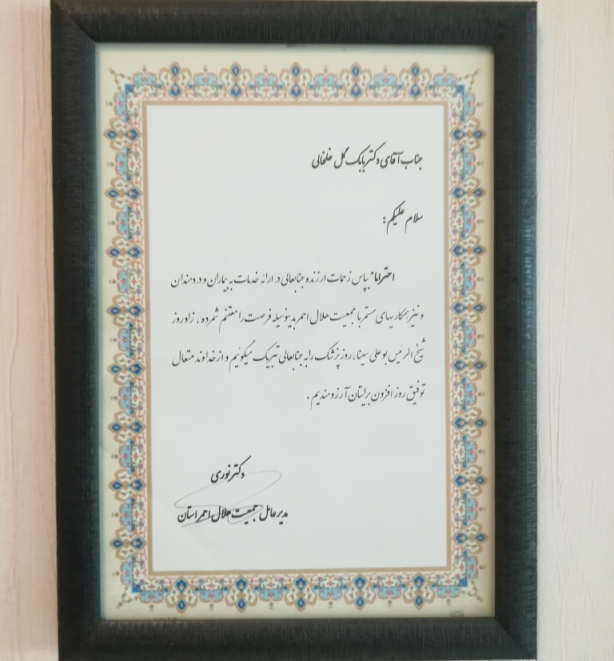 جناب آقای دکتر بابک گل خلخالی
سلام علیکم:
احتراما" بپاس زحمات ارزنده جنابعالی در ارائه خدمات به بیماران و دردمندان
و نیز همکاریهای مستمر با جمعیت هلال احمر بدینوسیله فرصت را مغتنم شمرده ، زادروز
شیخ الرئیس بوعلی سینا، روز پزشک را به جنابعالی تبریک میگوئیم و از خداوند متعال
توفیق روز افزون برایتان آرزومندیم .
دکتر نوری
مدیرعامل جمعیت هلال احمر استان